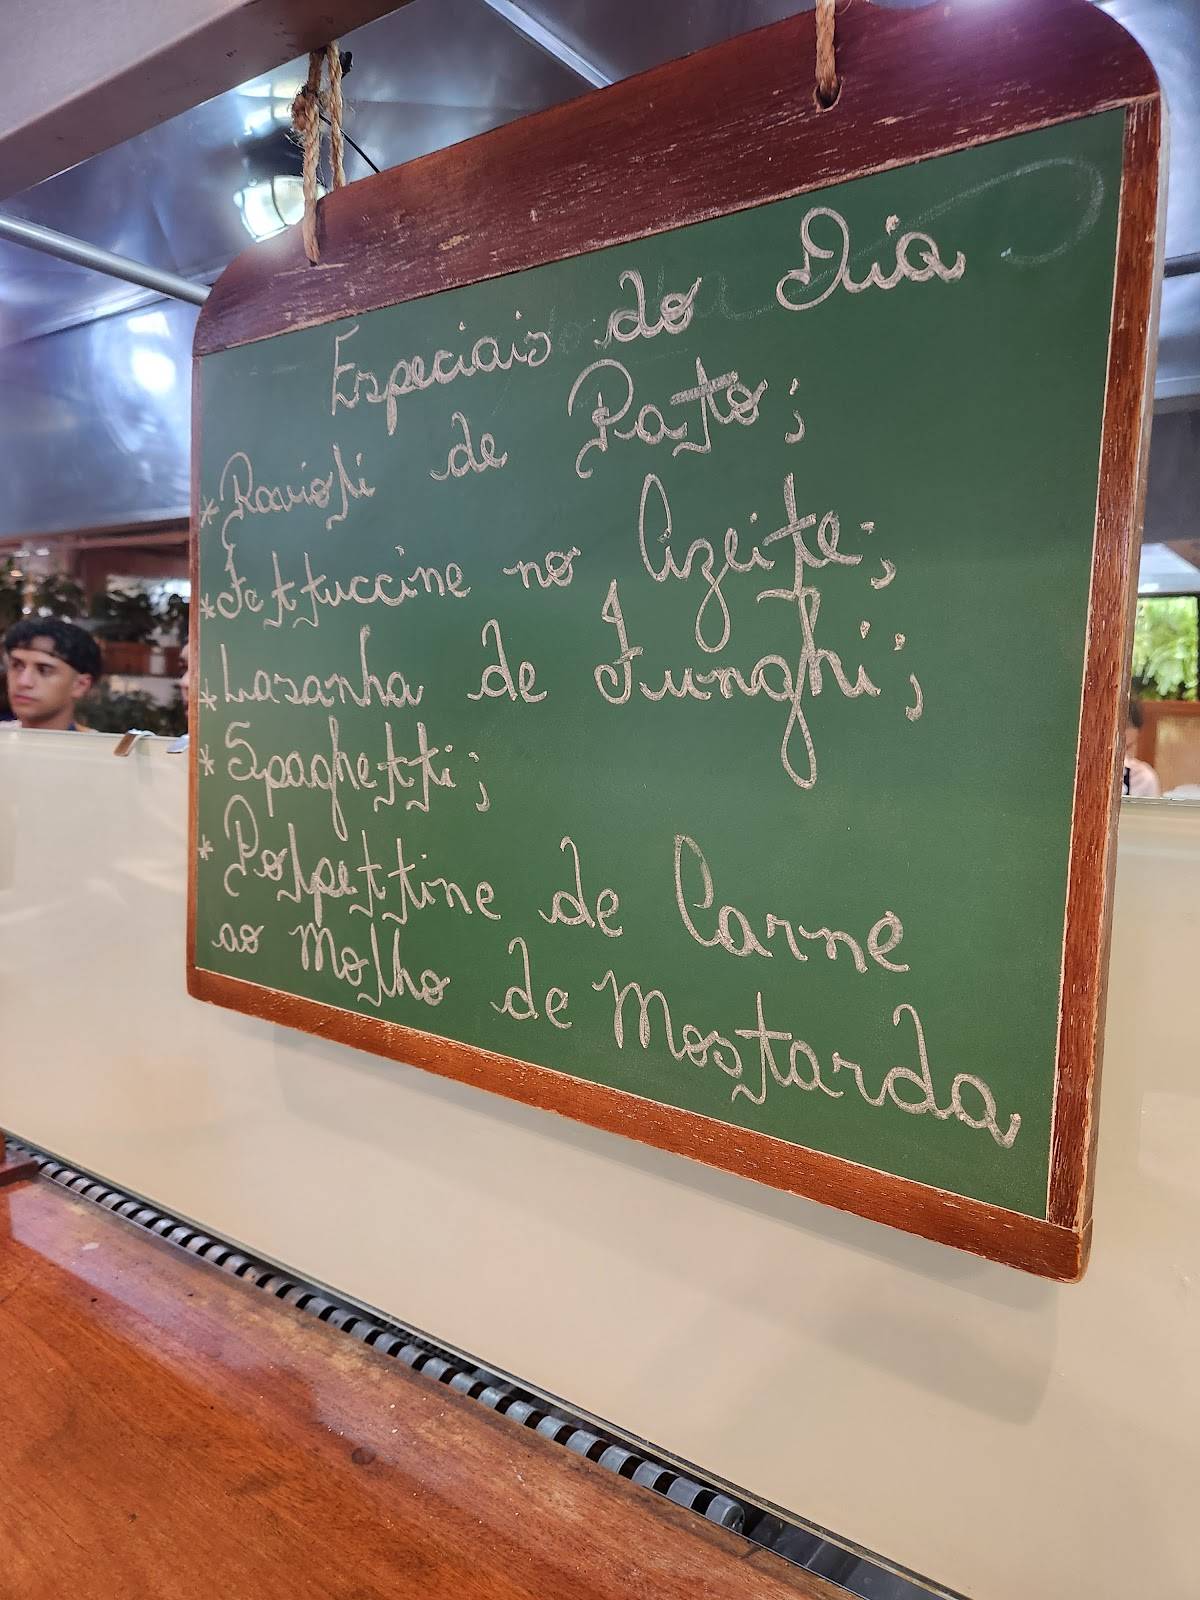 Especiais do Dia
* Ravioli de Pato;
* Fettuccine no Azeite;
* Lasanha de Funghi;
* Spaghetti;
* Polpettine de Carne
ao Molho de Mostarda